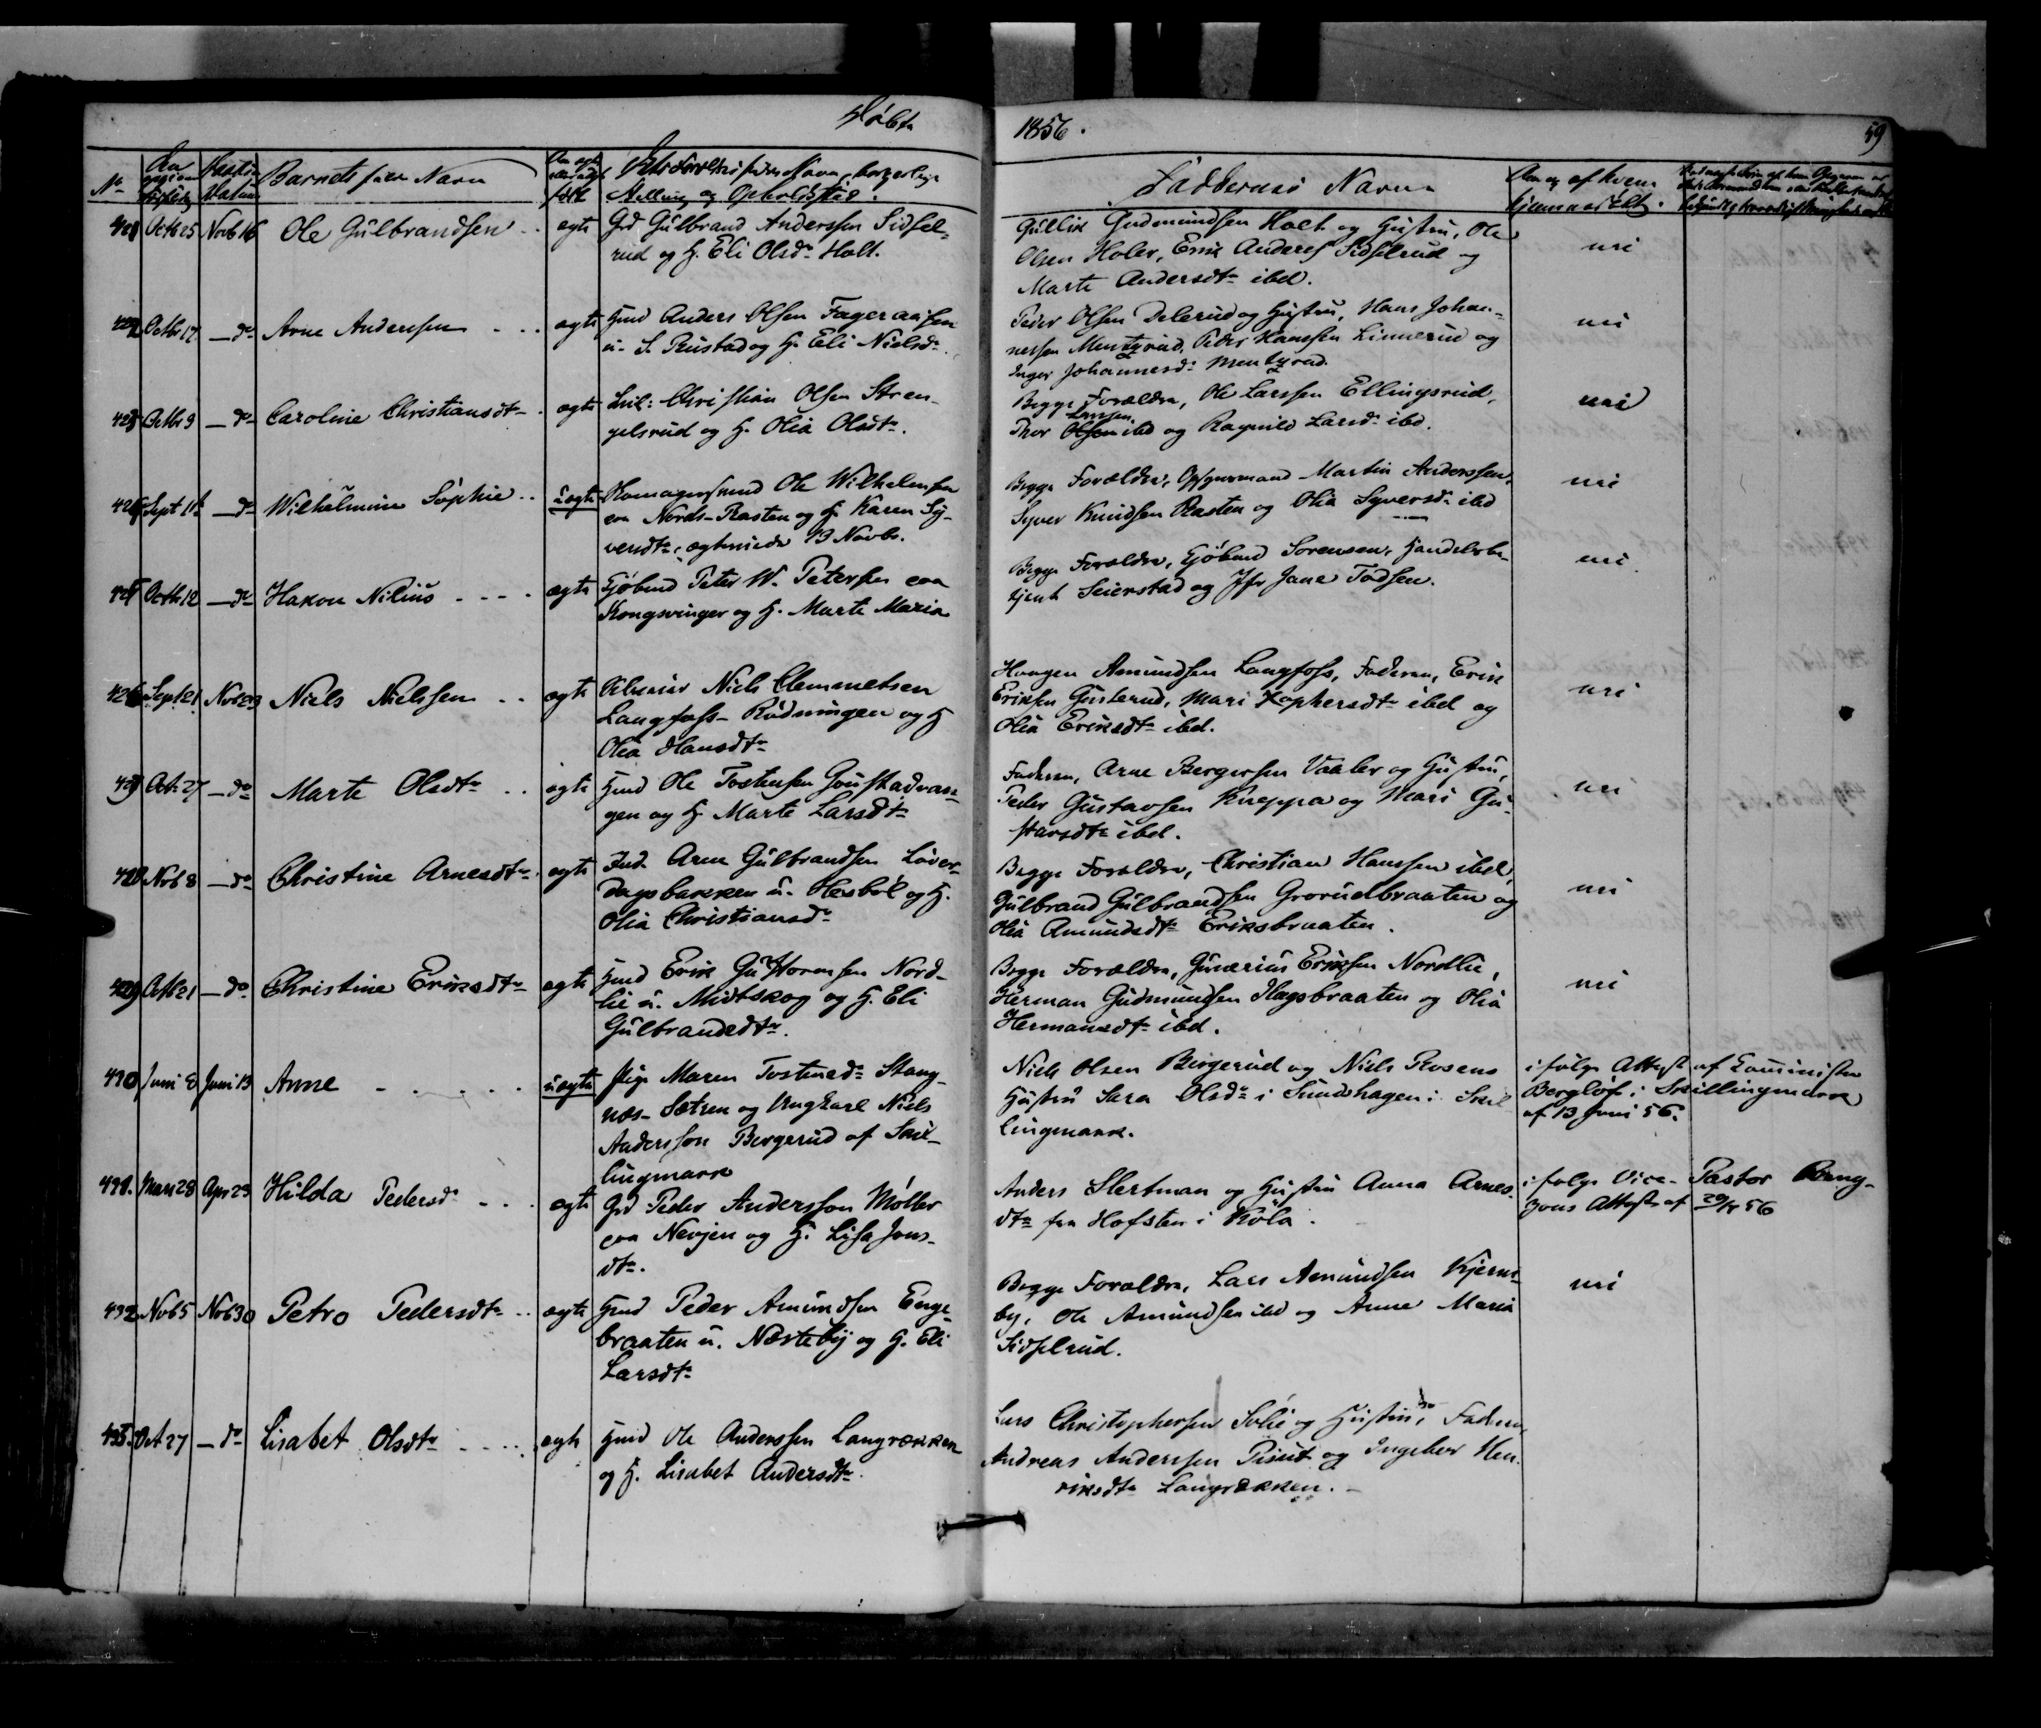 Døbte
1856.
59
No
Barnets fulde Navn
Stilling og Opholdssted.
Faddernes Navne
421 Octb 25 Novb 16 Ole Gulbrandsen .. ægte Grd Gulbrand Anderssen Sidsel-
rud og H. Eli Olsdr Holt.
Gullik Gudmundsen Holt og Hustru, Ole
Olsen Holer, Erik Anders Sidselrud og
Marte Andersdtr ibd.
nei
422 Octbr 17 – do Arne Anderssen ... ægte Hmd Anders Olsen Fageraasen
u. S. Rustad og H. Eli Nielsdr
Peder Olsen Delerud og Hustru, Hans Johan-
nessen Mentzrud, Peder Hanssen Linnerud og
Inger Johannesdr Mentzrud.
nei
423 Octbr 9 – do Caroline Christiansdtr . ægte Christian Olsen Stren-
gelsrud og H. Olia Olsdtr.
Begge Forældre, Ole Larssen Ellingsrud,
Larssen
Thor Olsen ibd og Ragnild Larsdr ibd.
nei
424 Sept 11 – do Wilhelmine Sophie .. uægte Ole Wilhelmsen
paa Nords-Rasten og H. Karen Sy-
versdtr, ægteviede 13 Novbr.
Begge Forældre, Opsynsmand Martin Anderssen,
Syver Knudsen Rasten og Olia Syversdr ibd
nei
425 Octbr 12 – do Hakon Nilius .... ægte Kjøbmd Peter W. Petersen paa
Kongsvinger og H. Marte Maria
Begge Forældre, Kjøbmd Sorensen, Handelsbe-
tjent Seierstad og Jfr Jane Todsen.
nei
426 Sept 21 Nov 23 Niels Nielsen .. ægte Niels Clemmetsen
Langfoss-Rudningen og H
Olia Hansdtr
Haagen Amundsen Langfoss, Faderen, Erik
Eriksen Gusterud, Mari Xophersdtr ibd og
Olia Eriksdtr ibd.
nei
427 Oct. 27 – do Marte Olsdtr .. ægte Hmd Ole Tostensen Goustadvan-
gen og H. Marte Larsdtr
Faderen, Arne Bergersen Vaaler og Hustru,
Peder Gustavsen Kneppa og Mari Gu-
stavsdtr ibd.
nei
428 Nov 8 – do Christine Arnesdtr. ægte Ind. Arne Gulbrandsen Løver-
dagsbakken u. Hesbøl og H.
Olia Christiansdr
Begge Forældre, Christian Hanssen ibd,
Gulbrand Gulbrandsen Grorudbraaten og
Olia Amundsdtr Eriksbraaten.
nei
429 Octb 21 – do Christine Eriksdtr ægte Hmd Erik Guttormsen Nord-
lie u. Midtskog og H. Eli
Gulbrandsdtr.
Begge Forældre, Gunerius Eriksen Nordlie,
Herman Gudmundsen Hagsbraaten og Olia
Hermansdtr ibd.
nei
430 Juni 8 Juni 13 Anne - . . . . uægte Pige Maren Tostensdr Stang-
næs-Sætren og Ungkarl Niels
Andersson Bergerud af Skil-
lingmark
Niels Olsen Birgerud og Niels Rosens
Hustru Sara Olsdr i Sundshagen i Skil-
lingmark.
i følge Attest af Comminister
Bergløf i Skillingmark
af 13 Juni 56.
431. Mars 28 Apr 23 Hilda Pedersdr ... ægte Grd Peder Andersson Møller
paa Nevjen og H. Lisa Jons-
dtr.
Anders Slertman og Hustru Anna Arnes-
dtr fra Hofsten i Køla.
i følge Vice-Pastor Beng-
zons Attest af 56
432 Nov 5 Nov 30 Petro Pedersdtr .. ægte Hmd Peder Amundsen Enge-
braaten u. Næsteby og H. Eli
Larsdtr
Begge Forældre, Lars Amundsen Kjerns-
by, Ole Amundsen ibd og Anne Maria
Sidselrud.
nei
433. Oct 27 – do Lisabet Olsdtr .... ægte Hmd Ole Anderssen Langrækken
og H. Lisabet Andersdtr.
Lars Christophersen Solie og Hustru, Faderen,
Andreas Anderssen Pisut og Ingebor Hen-
riksdtr Langrækken. –